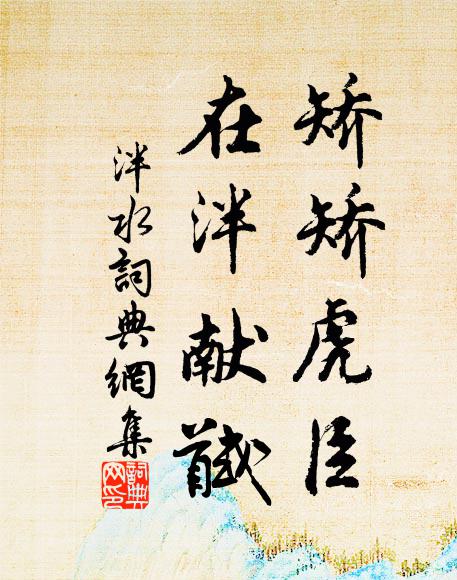 矫矫虎臣
在泮献馘
泮水詞典網集
詞典网印